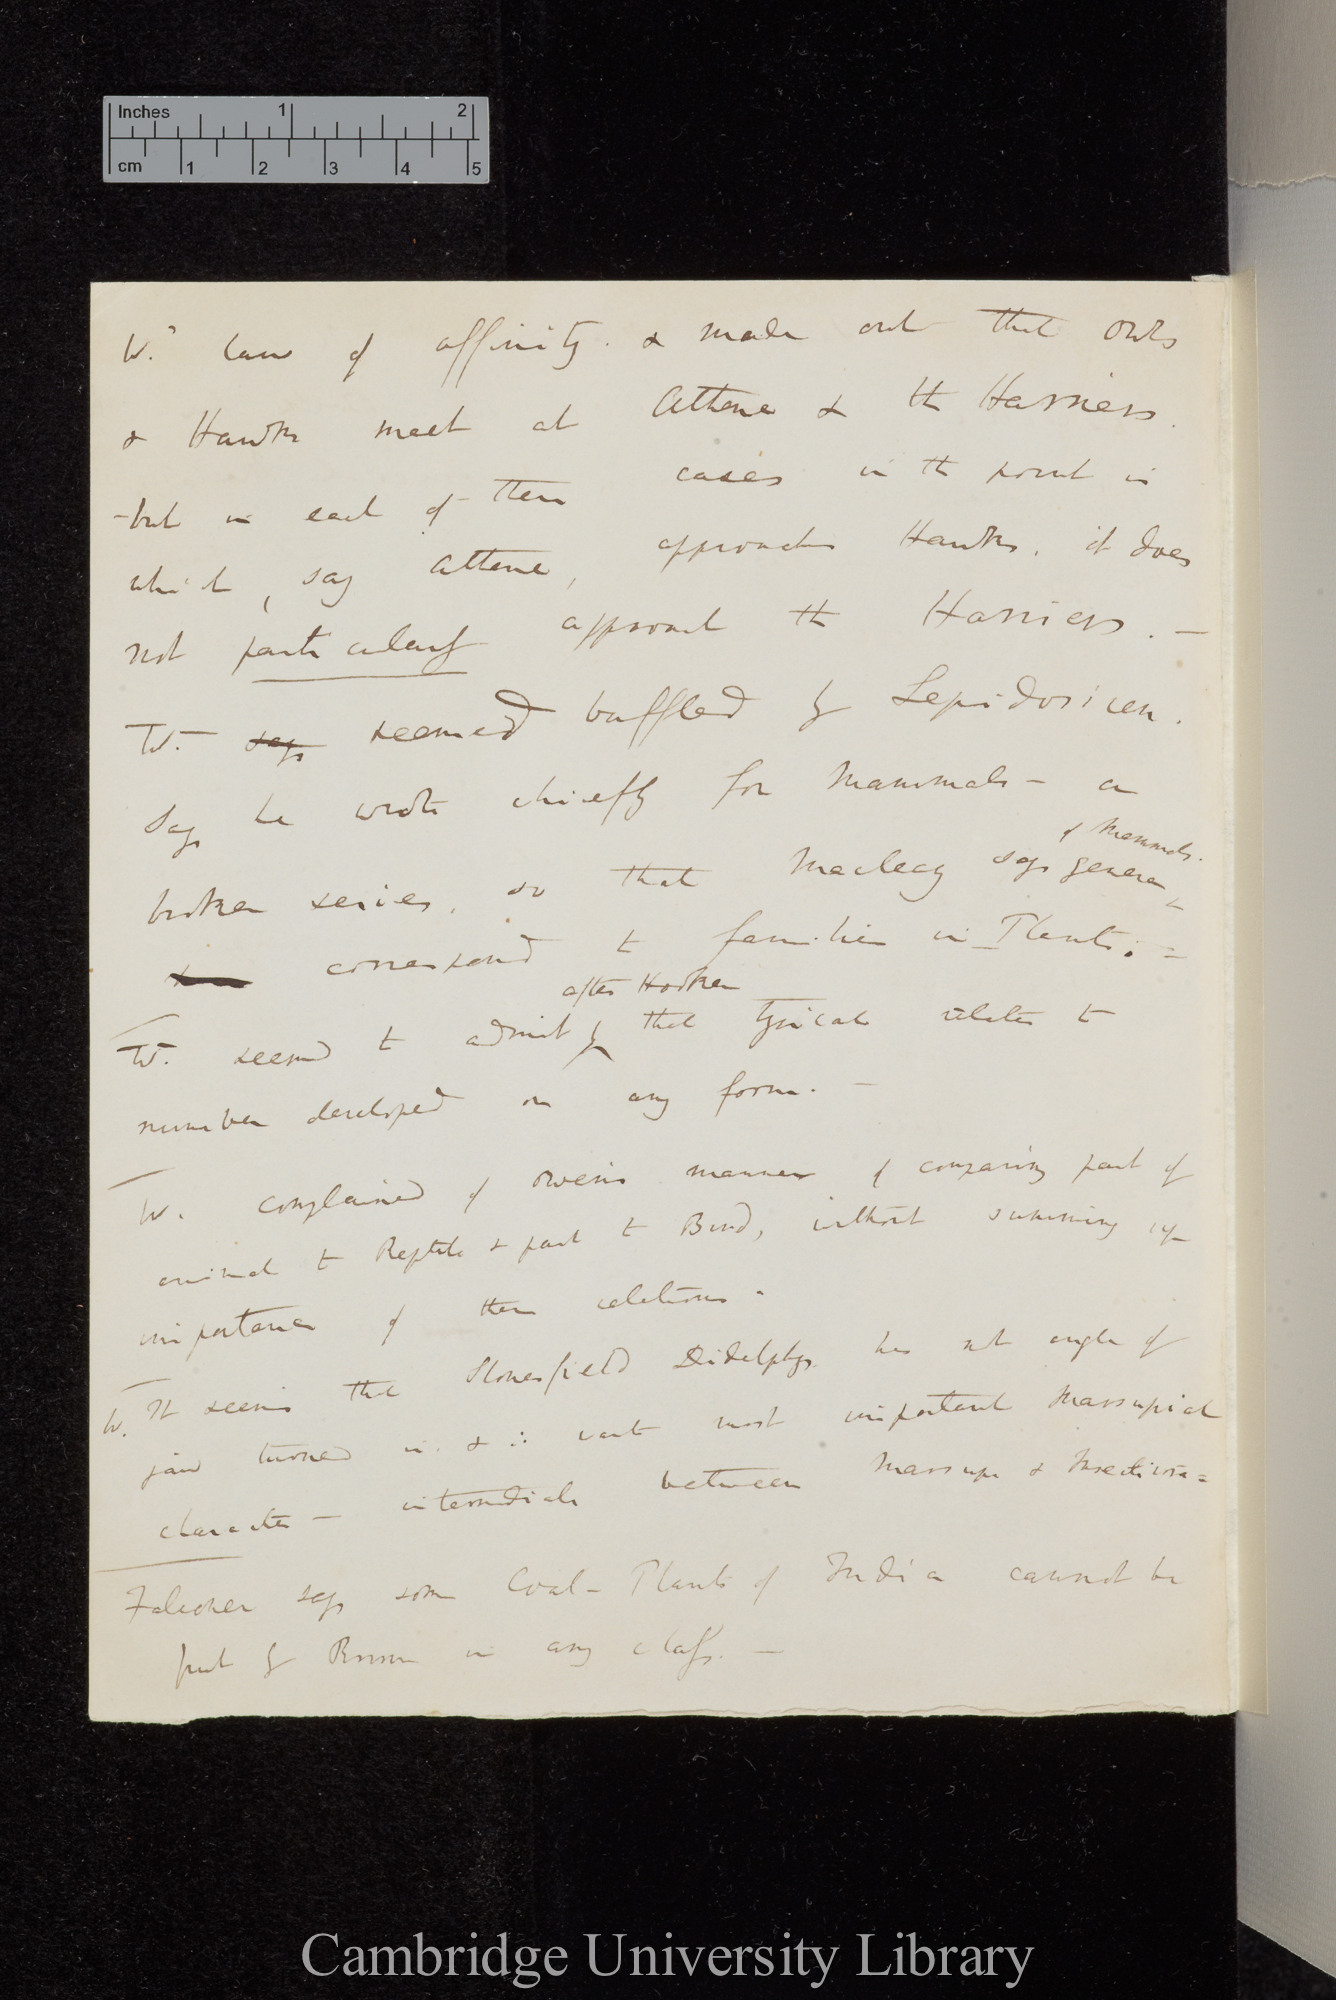 Inches 1 2
cm 1 2 3 4 5
W.' law of affinity. & made out that Owls
& Hawks meet at Athene & the Harriers.
-but in each of these cases in the point in
which, say Athene, approaches Hawks, it does
not particularly approach the Harriers. —
W. — says seemed baffled by Lepidosiren.
Says he wrote chiefly for Mammals — a
of Mammals.
broken series, so that Macleay says genera
correspond to families in Plants. =
after Hooker
W. seemed to admit that typical relates to
number developed on any form. —
W. complained of Owen's manner of comparing part of
animal to Reptile & part to Bird, without summing up
importance of these relations.
W. It seems that Stonesfield Didelphys has not angle of
jaw turned in & ∴ want most important Marsupial
character — intermediate between Marsup & Insectivora =
Falconer says some Coal-Plants of India cannot be
put by Brown in any class. —
Cambridge University Library